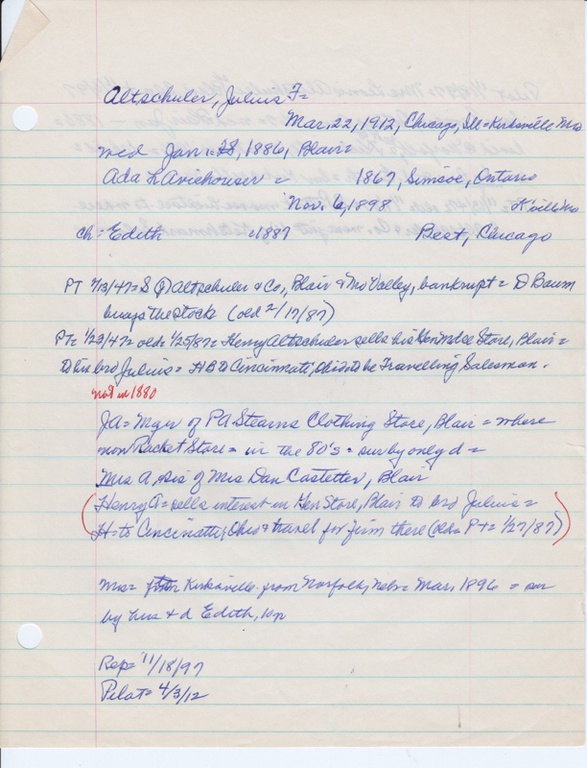 Altschuler, Julius F=
Mar, 22, 1912, Chicago, Ill = Kirksville Mo
md Jan. 28, 1886, Blair=
Ada L Arichouser = 1867, Simcoe, Ontario
Nov. 6, 1898 K'ville Mo
ch: Edith c1887 Best, Chicago
PT 7/13/47= S Altschuler & Co, Blair & Mo Valley, bankrupt = D Baum
buys the stock (old 2/17/87)
PT= 1/29/47= old= 1/25/87= Henry Altschuler sells his Gen Mdse Store, Blair=
to his bro Julius = H B to Cincinnati, Ohio to be Travelling Salesman.
not in 1880
JA= Mgr of PA Stearns Clothing Store, Blair = where
now Racket Store = in the 80's = sur by only d =
Mrs A, sis of Mrs Dan Castetter, Blair
(Henry A= sells interest in Gen Store, Blair to bro Julius =
H= to Cincinatti, Ohio & travel for firm there (old= Pt= 1/27/87))
Mrs= Kirksville from Norfolk, Nebr= Mar, 1896 = sur
by hus & d Edith, 10n
Rep= 11/18/97
Pilot= 4/3/12